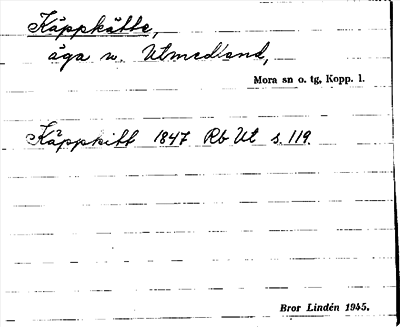 Käppkätte,
äga v. Utmedland,
Mora sn o. tg, Kopp. l.
Käppkitt 1847 Rb Ut s. 119.
Bror Lindén 1945.